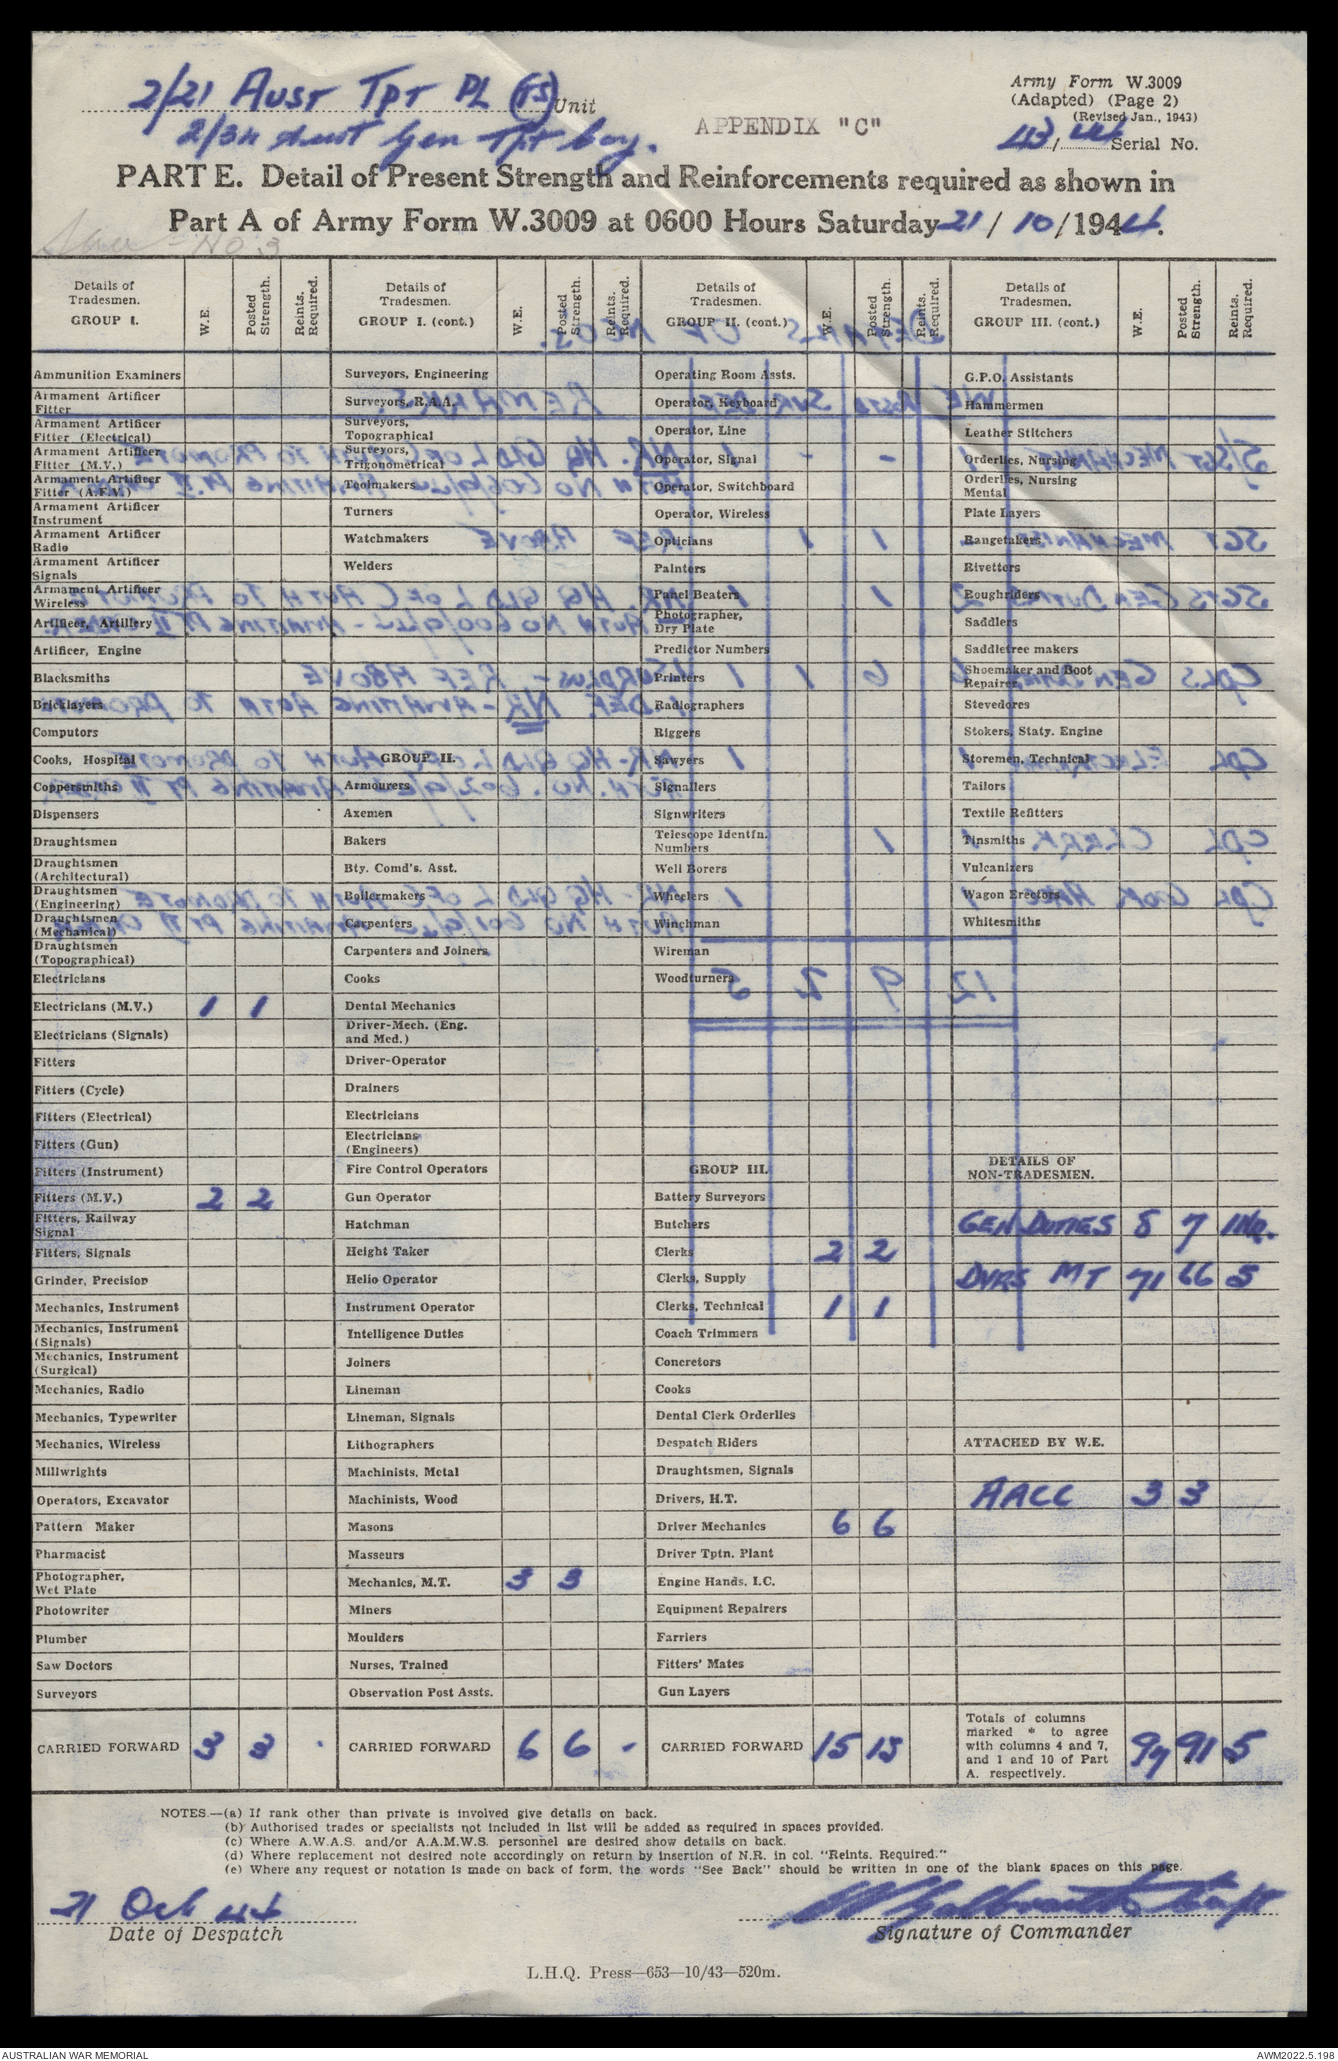 2/21 Aust Tpt Pl (TS) Unit
2/3rd Aust Gen Tpt Coy.
APPENDIX "C"
Army Form W.3009
(Adapted) (Page 2)
(Revised Jan., 1943)
43/44 Serial No.
PART E. Detail of Present Strength and Reinforcements required as shown in
Part A of Army Form W.3009 at 0600 Hours Saturday 21/10/1944.
No 3
Details of Tradesmen. GROUP I. W.E. Posted Strength. Reints. Required.
Ammunition Examiners
Armament Artificer Fitter
Armament Artificer Fitter (Electrical)
Armament Artificer Fitter (M.V.)
Armament Artificer Fitter (A.F.V.)
Armament Artificer Instrument
Armament Artificer Radio
Armament Artificer Signals
Armament Artificer Wireless
Artificer, Artillery
Artificer, Engine
Blacksmiths
Bricklayers
Computors
Cooks, Hospital
Coppersmiths
Dispensers
Draughtsmen
Draughtsmen (Architectural)
Draughtsmen (Engineering)
Draughtsmen (Mechanical)
Draughtsmen (Topographical)
Electricians
Electricians (M.V.) 1 1
Electricians (Signals)
Fitters
Fitters (Cycle)
Fitters (Electrical)
Fitters (Gun)
Fitters (Instrument)
Fitters (M.V.) 2 2
Fitters, Railway Signal
Fitters, Signals
Grinder, Precision
Mechanics, Instrument
Mechanics, Instrument (Signals)
Mechanics, Instrument (Surgical)
Mechanics, Radio
Mechanics, Typewriter
Mechanics, Wireless
Millwrights
Operators, Excavator
Pattern Maker
Pharmacist
Photographer, Wet Plate
Photowriter
Plumber
Saw Doctors
Surveyors
CARRIED FORWARD 3 3 .
Details of Tradesmen. GROUP I. (cont.) W.E. Posted Strength. Reints. Required.
Surveyors, Engineering
Surveyors, R.A.A.
Surveyors, Topographical
Surveyors, Trigonometrical
Toolmakers
Turners
Watchmakers
Welders
GROUP II.
Armourers
Axemen
Bakers
Bty. Comd's. Asst.
Boilermakers
Carpenters
Carpenters and Joiners
Cooks
Dental Mechanics
Driver-Mech. (Eng. and Med.)
Driver-Operator
Drainers
Electricians
Electricians (Engineers)
Fire Control Operators
Gun Operator
Hatchman
Height Taker
Helio Operator
Instrument Operator
Intelligence Duties
Joiners
Lineman
Lineman, Signals
Lithographers
Machinists, Metal
Machinists, Wood
Masons
Masseurs
Mechanics, M.T. 3 3
Miners
Moulders
Nurses, Trained
Observation Post Assts.
CARRIED FORWARD 6 6 -
Details of Tradesmen. GROUP II. (cont.) W.E. Posted Strength. Reints. Required.
Operating Room Assts.
Operator, Keyboard
Operator, Line
Operator, Signal
Operator, Switchboard
Operator, Wireless
Opticians
Painters
Panel Beaters
Photographer, Dry Plate
Predictor Numbers
Printers
Radiographers
Riggers
Sawyers
Signallers
Signwriters
Telescope Identfn. Numbers
Well Borers
Wheelers
Winchman
Wireman
Woodturners
GROUP III.
Battery Surveyors
Butchers
Clerks 2 2
Clerks, Supply
Clerks, Technical 1 1
Coach Trimmers
Concretors
Cooks
Dental Clerk Orderlies
Despatch Riders
Draughtsmen, Signals
Drivers, H.T.
Driver Mechanics 6 6
Driver Tptn. Plant
Engine Hands, I.C.
Equipment Repairers
Farriers
Fitters' Mates
Gun Layers
CARRIED FORWARD 15 15
Details of Tradesmen. GROUP III. (cont.) W.E. Posted Strength. Reints. Required.
G.P.O. Assistants
Hammermen
Leather Stitchers
Orderlies, Nursing
Orderlies, Nursing Mental
Plate Layers
Rangetakers
Rivetters
Roughriders
Saddlers
Saddletree makers
Shoemaker and Boot Repairer
Stevedores
Stokers, Staty. Engine
Storemen, Technical
Tailors
Textile Refitters
Tinsmiths
Vulcanizers
Wagon Erectors
Whitesmiths
DETAILS OF NON-TRADESMEN.
GEN DUTIES 8 7 1NR.
DVRS MT 71 66 5
ATTACHED BY W.E.
AACC 3 3
Totals of columns marked * to agree with columns 4 and 7, and 1 and 10 of Part A. respectively. 97 91 5
NOTES.—(a) If rank other than private is involved give details on back.
(b) Authorised trades or specialists not included in list will be added as required in spaces provided.
(c) Where A.W.A.S. and/or A.A.M.W.S. personnel are desired show details on back.
(d) Where replacement not desired note accordingly on return by insertion of N.R. in col. "Reints. Required."
(e) Where any request or notation is made on back of form, the words "See Back" should be written in one of the blank spaces on this page.
21 Oct 44
Date of Despatch
Signature of Commander
L.H.Q. Press—653—10/43—520m.
AUSTRALIAN WAR MEMORIAL
AWM2022.5.198